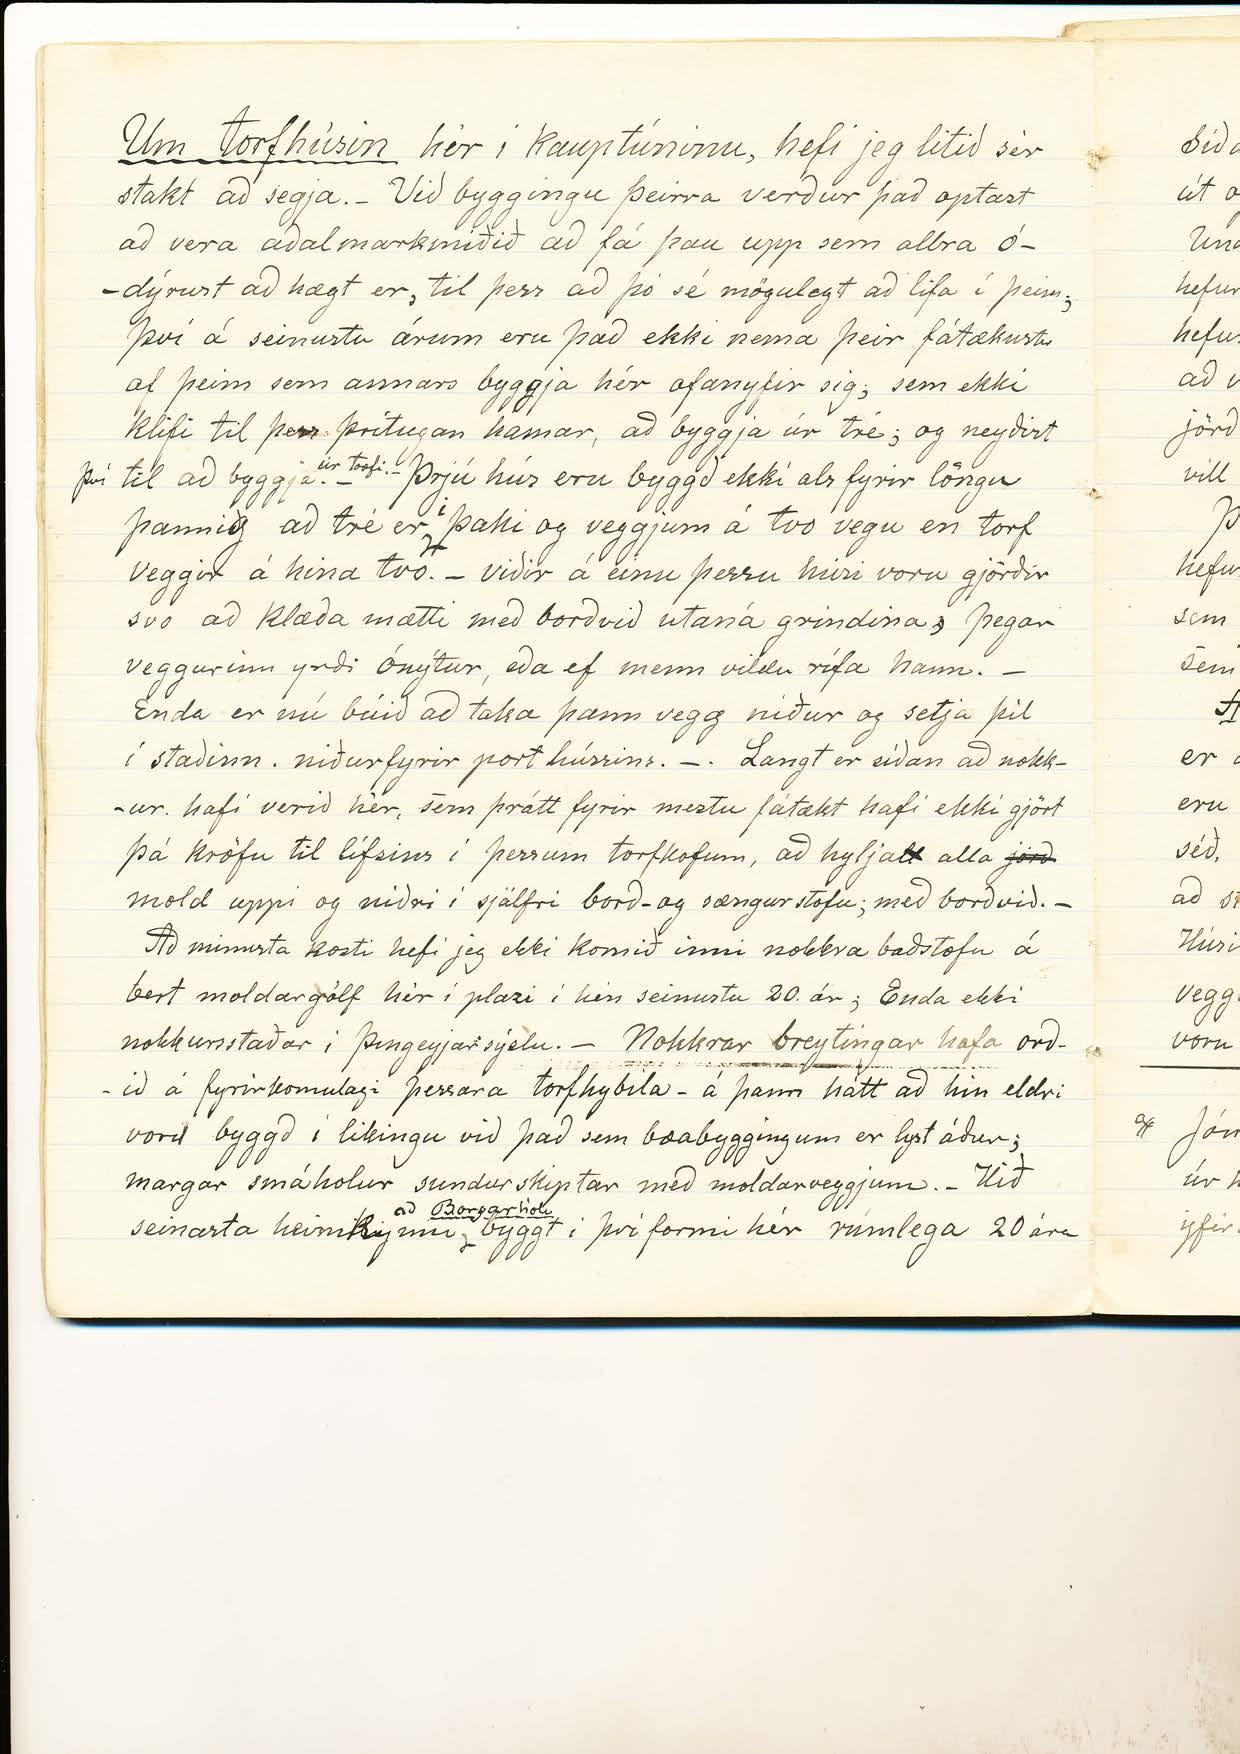 Um torfhúsin hér í kauptúninu, hefi jeg litið sér
stakt að segja. - Við byggingu þeirra verður það optast
að vera aðalmarkmiðið að fá þau upp sem allra ó-
-dýrust að hægt er, til þess að þó sé mögulegt að lifa í þeim;
Því á seinustu árum eru það ekki nema þeir fátækustu
af þeim sem annars byggja hér ofanyfir sig; sem ekki
klifi til þess þrítugan hamar, að byggja úr tré; og neyðist
því til að byggja úr torfi. - Þrjú hús eru byggð ekki als fyrir löngu
þannig að tré er í þaki og veggjum á tvo vegu en torf
veggir á hina tvo. - viðir á einu þessu húsi voru gjörðir
svo að klæða mætti með borðvið utaná grindina, þegar
veggurinn yrði ónýtur, eða ef menn vildu rífa hann. -
Enda er nú búið að taka þann vegg niður og setja þil
í staðinn. niðurfyrir port hússins. -. Langt er síðan að nokk-
-ur. hafi verið hér, sem þrátt fyrir mestu fátækt hafi ekki gjört
þá kröfu til lífsins í þessum torfkofum, að hylja alla jörð
mold uppi og niðri í sjálfri borð- og sængurstofu; með borðvið. -
Að minnsta kosti hefi jeg ekki komið inni nokkra baðstofu á
bert moldargólf hér í plázi í hin seinustu 20. ár; Enda ekki
nokkursstaðar í Þingeyjarsýslu. - Nokkrar breytingar hafa orð-
-ið á fyrirkomulagi þessara torfhybíla - á þann hátt að hin eldri
voru byggð í líkingu við það sem bæabyggingum er lýst áður;
margar smáholur sundurskiptar með moldarveggjum. - Hið
seinasta heimkynni að Borgarhóli byggt í því formi hér rúmlega 20 ára
Síð
út
Und
hefur
hefur
að
jörð
vill
Þ
hefu
sem
sem
er
eru
séð,
að
Húsi
vegg
voru
Jón
úr
yfir